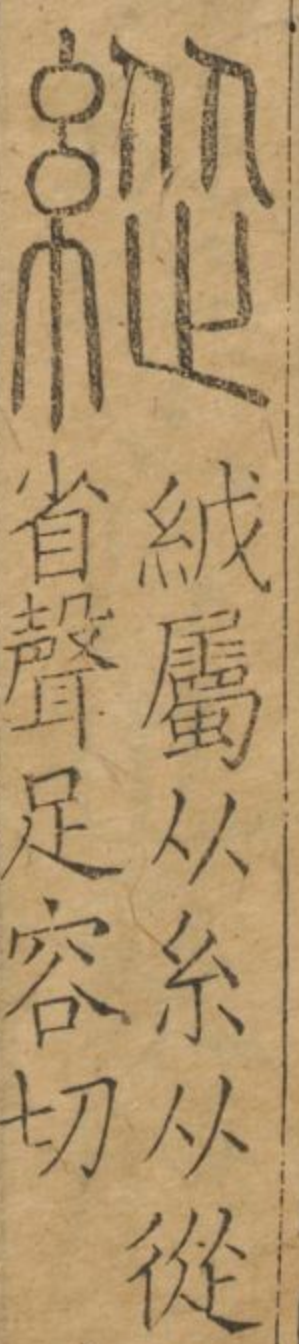 緃
䋐屬从糸从從
省聲足容切